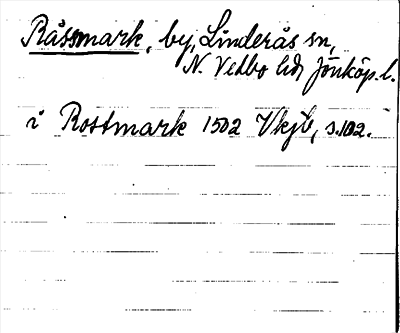 Råssmark, by, Linderås sn,
N. Vedbo hd, Jönköp. l.
i Rostmark 1502 Vkjb, s. 102.